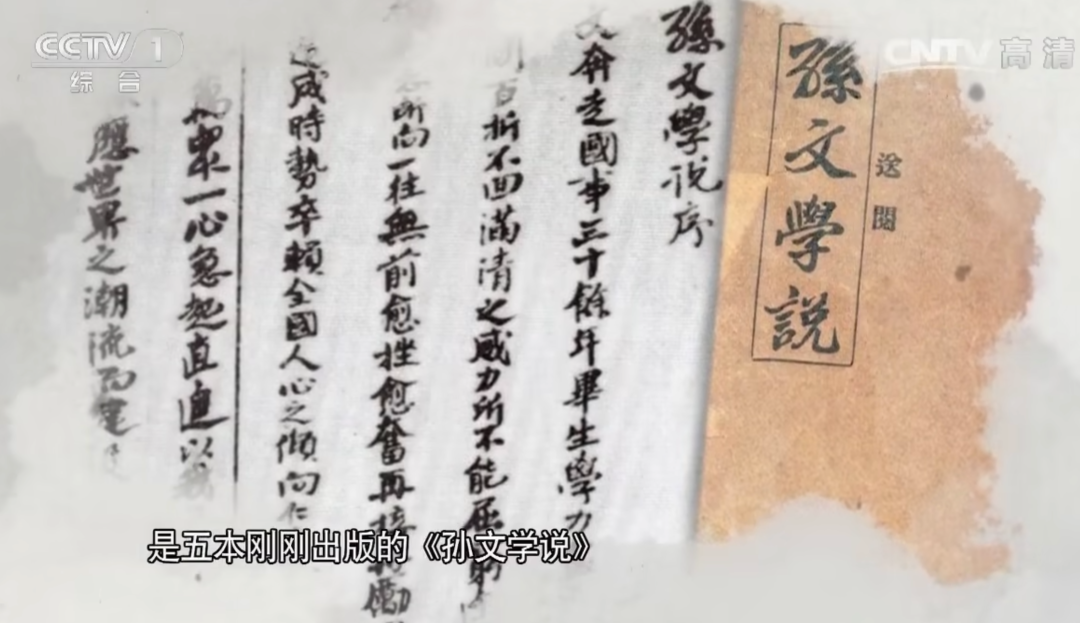 CCTV 1
综合
CNTV 高清
孫文學説
送閱
孫文學说序
文奔走國事三十餘年畢生學力
百折不回滿清之威力所不能屈窮
所向一往無前愈挫愈奮再接勵
成時勢卒賴全國人心之傾向仁
萬眾一心急起直追以我
應世界之潮流而建
是五本刚刚出版的《孙文学说》